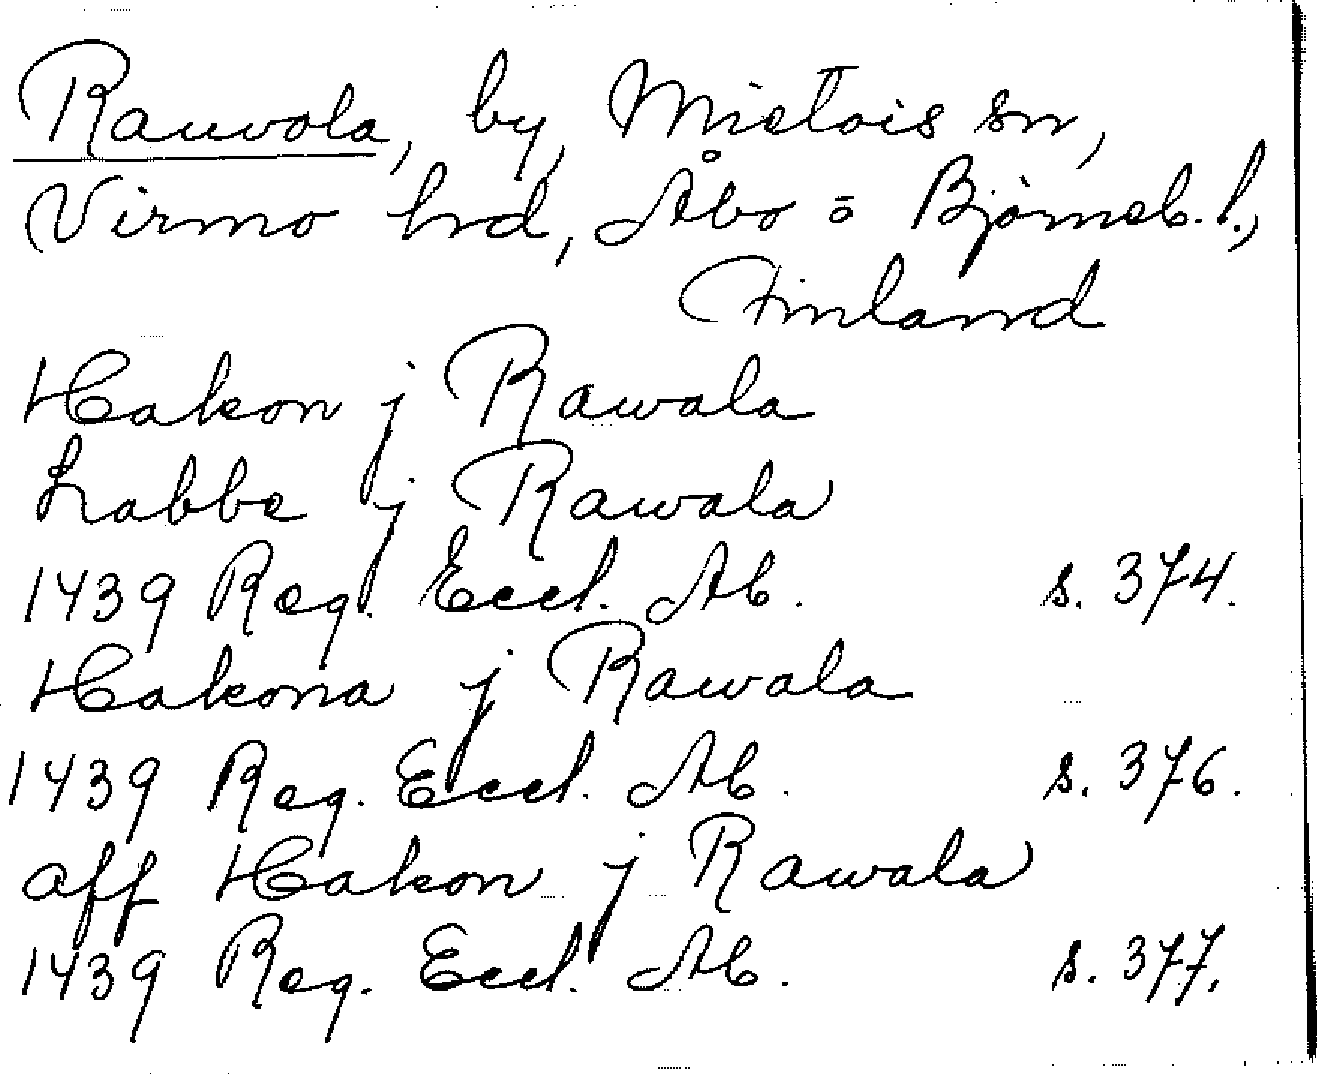 Rauvola, by, Mietois sn,
Virmo hrd, Åbo o Björneb. l.,
Finland
Hakon j Rawala
Labbe j Rawala
1439 Reg. Eccl. Ab. s. 374.
Hakona j Rawala
1439 Reg. Eccl. Ab. s. 376.
aff Hakon j Rawala
1439 Reg. Eccl. Ab. s. 377.